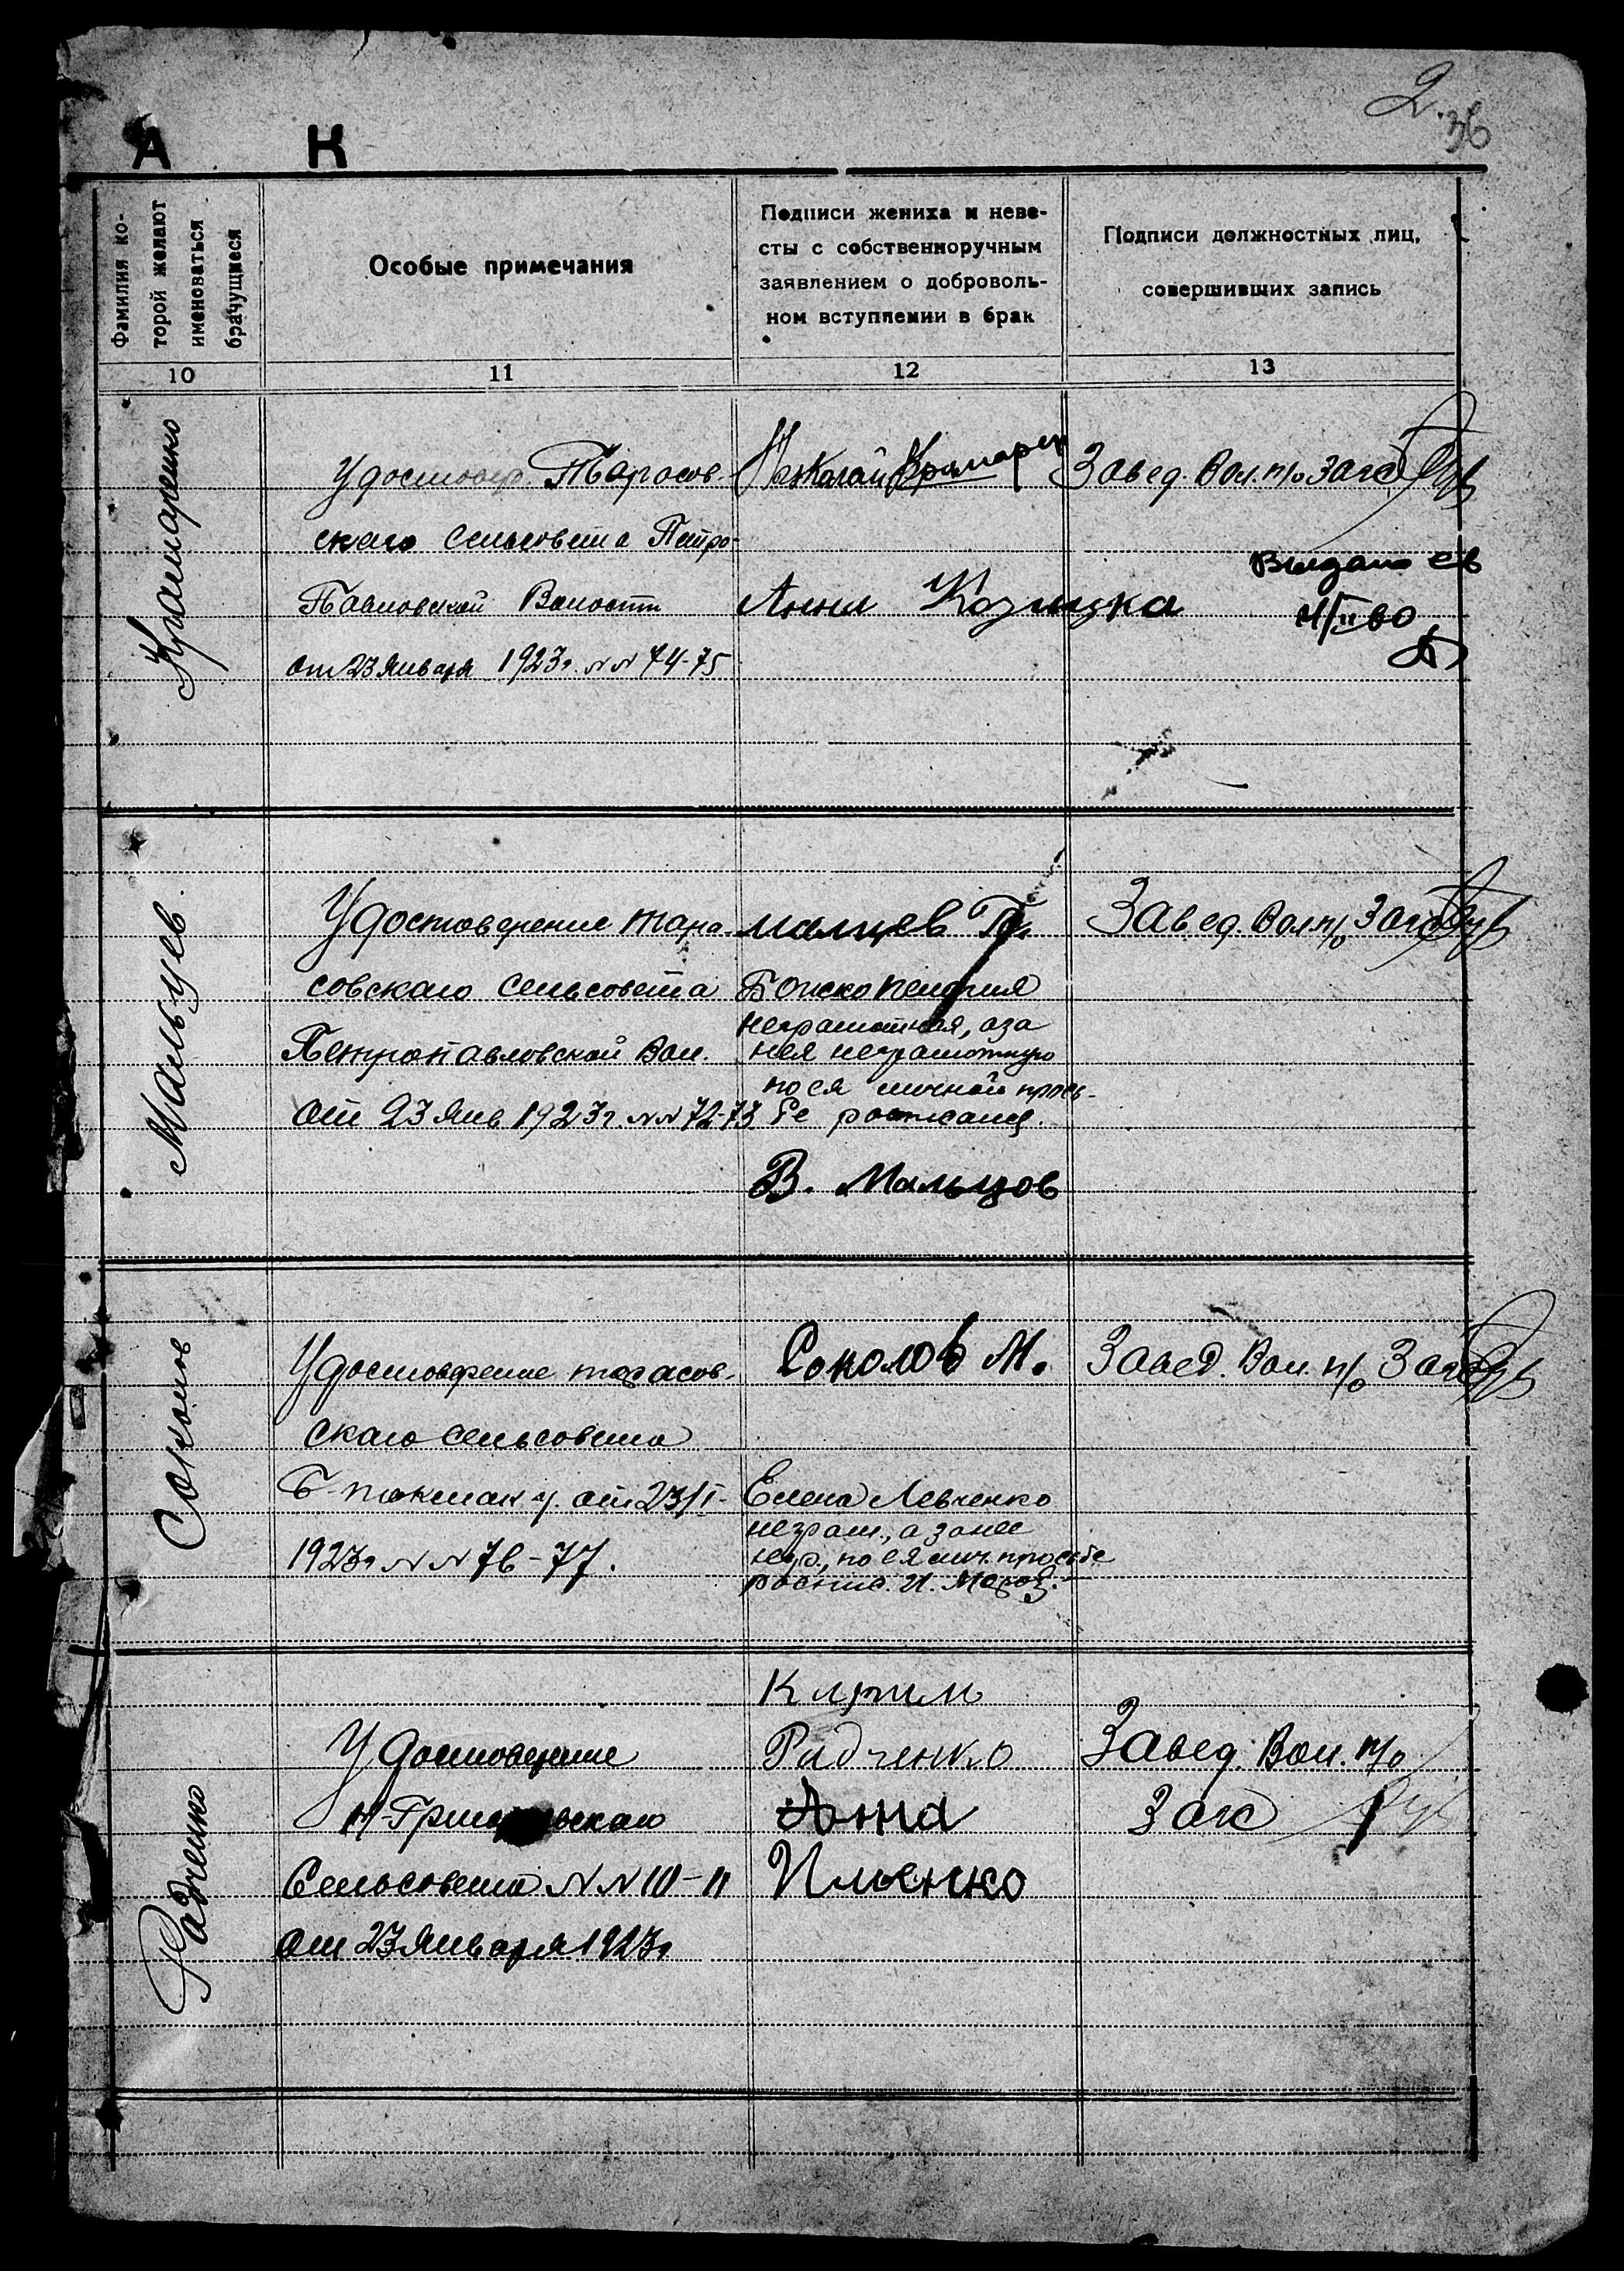 2.
36
А К
Фамилия ко-
торой желают
именоваться
брачущиеся
Особые примечания
Подписи жениха и неве-
сты с собственноручным
заявлением о доброволь-
ном вступлении в брак
Подписи должностных лиц,
совершивших запись
10
11
12
13
Крамаренко
Удостовер. Тарасов-
скаго сельсовета Петро-
Павловской Волости
от 23 Января 1923г. NN 74-75
Николай Крамарен
Анна Козицка
Завед. Вол. п/о Загс
Выдано св
60
Мальцев.
Удостоверение тара-
совскаго сельсовета
Петропавловской Вол.
от 23 Янв 1923г. NN 72-73
малцев
Божко
неграмотная, а за
нея неграмотную
по ея личной прось-
В. Мальцов
Завед. Вол. п/о Загс
Соколов
Удостоверение тарасов-
скаго сельсовета
Б-токмак у. от 23/I-
1923г NN 76-77.
Соколов М.
Елена Левченко
неграм., а за нее
негр., по ея лич. просьбе
распис. И.
Завед. Вол. п/о Загс
Радченко
Удостоверение
Сельсовета NN 10-11
от 23 Января 1923г
Радченко
Анна
Ильенко
Завед. Вол. п/о
Загс